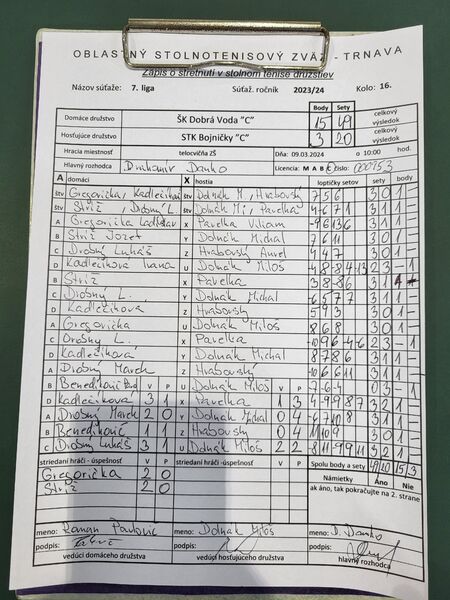 OBLASTNÝ STOLNOTENISOVÝ ZVÄZ - TRNAVA
Zápis o stretnutí v stolnom tenise družstiev
Názov súťaže: 7. liga Súťaž. ročník 2023/24 Kolo: 16.
Body Sety
Domáce družstvo ŠK Dobrá Voda "C" 15 49 celkový výsledok
Hosťujúce družstvo STK Bojničky "C" 3 20 celkový výsledok
Hracia miestnosť telocvičňa ZŠ Dňa: 09.03.2024 o 10:00 hod.
Hlavný rozhodca Drahomír Danko Licencia: M A B C číslo: 000953
A domáci X hostia loptičky setov sety body
štv. Gregorička/Kadlečíková štv. Dolnák M/Hrabovský 7 5 6 3 0 1 -
štv. Stríž / Drobný L. štv. Dolnák Mi/Pavelka -4 -6 7 1 3 1 -
A Gregorička Ladislav X Pavelka Viliam
B Stríž Jozef Y Dolnák Michal 7 6 11 3 0 1
C Drobný Lukáš Z Hrabovský Aurel 4 4 7 3 0 1
D Kadlečíková Ivana U Dolnák Miloš 2 3 - 1
B Stríž X Pavelka 3 8 -8 6 3 1
C Drobný L. Y Dolnák Michal -6 5 7 7 3 1 1
D Kadlečíková Z Hrabovský 5 9 3 3 0 1
A Gregorička U Dolnák Miloš 8 6 8 3 0 1 -
C Drobný L. X Pavelka 2 3 - 1
D Kadlečíková Y Dolnák Michal 8 7 8 6 3 1 1
A Drobný Marek Z Hrabovský -10 6 6 11 3 1 1
B Benedikovič U Dolnák Miloš -7 -6 -4 0 3 - 1
D Kadlečíková 3 1 X Pavelka 1 3 3 2 1
A Drobný Marek 2 0 Y Dolnák Michal 0 4 3 1 1
B Benedikovič 1 1 Z Hrabovský 0 4 11 10 9 3 0 1
C Drobný Lukáš 3 1 U Dolnák Miloš 2 2 3 2 1
striedaní hráči - úspešnosť V P striedaní hráči - úspešnosť: V P Spolu body a sety 15 3
Gregorička 2 0
Stríž 2 0
Námietky Áno Nie
ak áno, tak pokračujte na 2. strane
meno: Roman Pavlovič meno: Dolnák Miloš meno: D. Danko
podpis: podpis: podpis:
vedúci domáceho družstva vedúci hosťujúceho družstva hlavný rozhodca